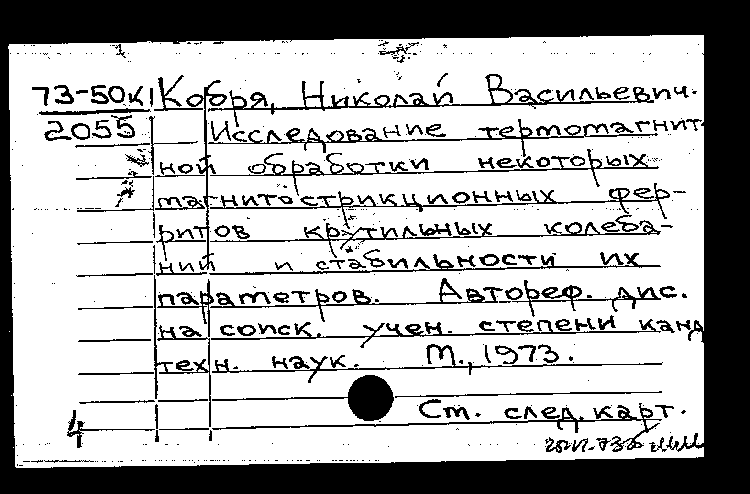 73-50к Кобря, Николай Васильевич.
2055 Исследование термомагнит-
ной обработки некоторых
магнитострикционных фер-
ритов крутильных колеба-
ний и стабильности их
параметров. Автореф. дис.
на соиск. учен. степени канд
техн. наук. М., 1973.
См. след. карт.
4